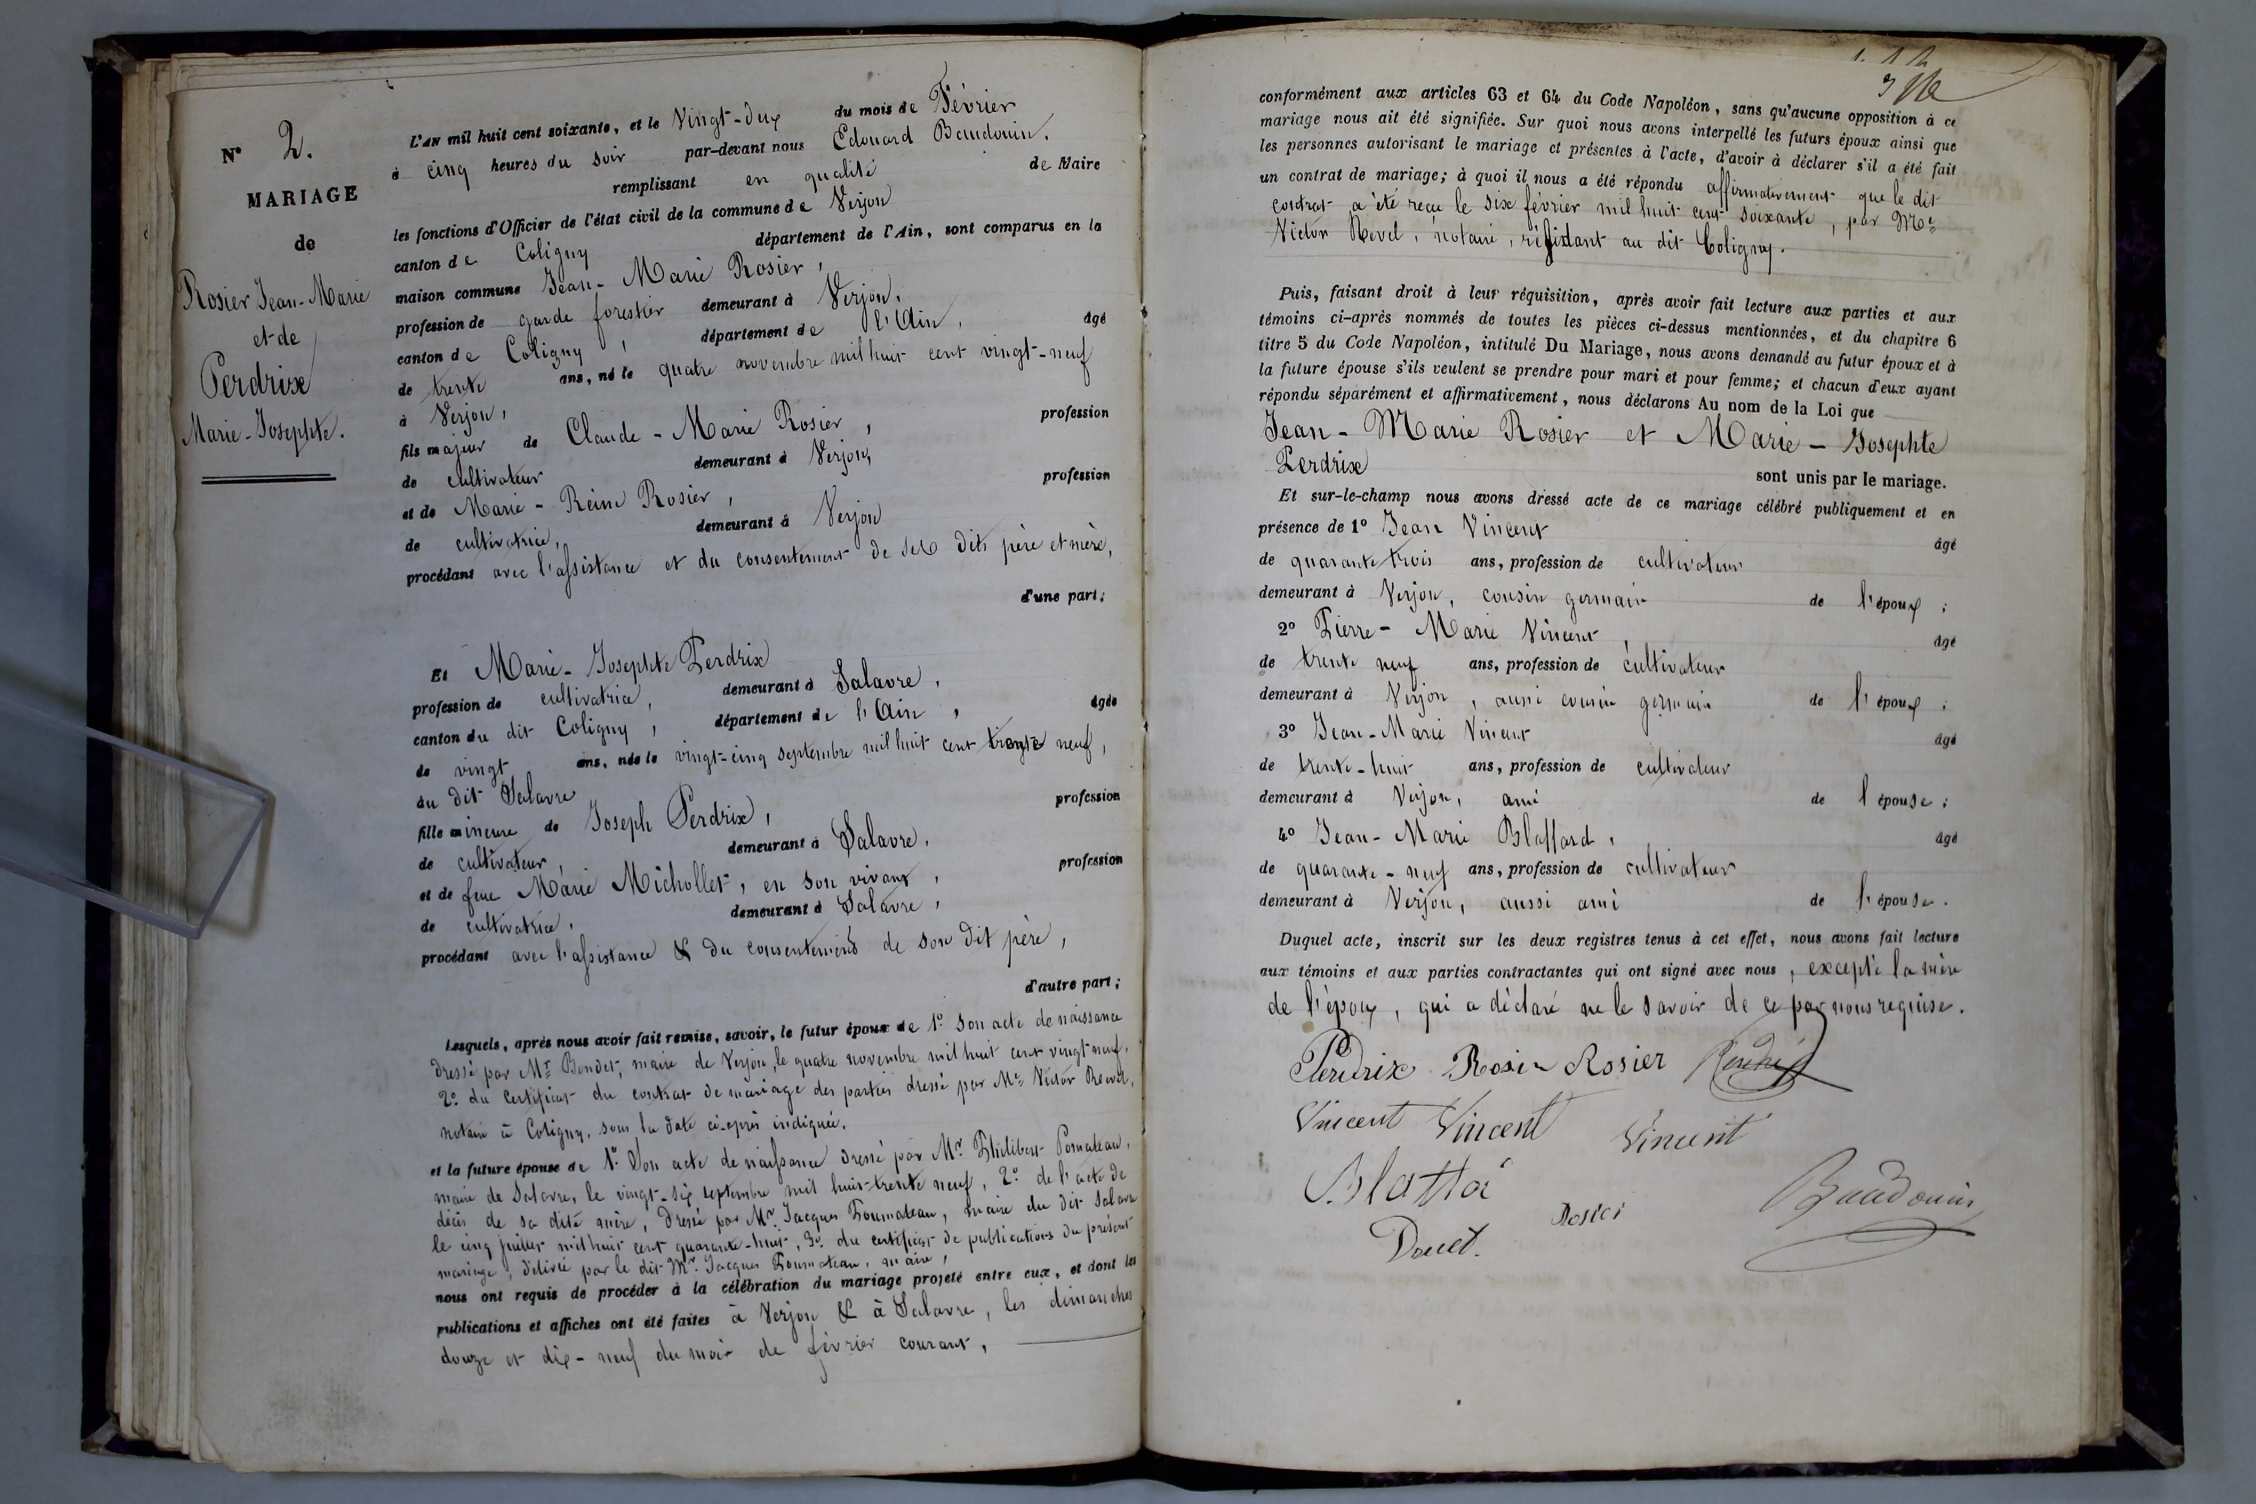 N° 2.
MARIAGE
de
Rosier Jean-Marie
et de
Perdrix
Marie-Josephte.
L'AN mil huit cent soixante, et le Vingt-deux du mois de Février
à cinq heures du soir par-devant nous Edouard Baudouin.
remplissant en qualité de Maire
les fonctions d'Officier de l'état civil de la commune de Verjon
canton de Coligny département de l'Ain, sont comparus en la
maison commune Jean-Marie Rosier,
profession de garde forestier demeurant à Verjon,
canton de Coligny, département de l'Ain, âgé
de trente ans, né le quatre novembre mil huit cent vingt-neuf
à Verjon,
fils majeur de Claude-Marie Rosier, profession
de cultivateur demeurant à Verjon,
et de Marie-Reine Rosier, profession
de cultivatrice, demeurant à Verjon
procédant avec l'assistance et du consentement de ses dits père et mère,
d'une part;
Et Marie-Josephte Perdrix
profession de cultivatrice, demeurant à Salavre,
canton du dit Coligny, département de l'Ain, âgée
de vingt ans, née le vingt-cinq septembre mil huit cent trente neuf,
au dit Salavre
fille mineure de Joseph Perdrix, profession
de cultivateur, demeurant à Salavre,
et de feue Marie Michollet, en son vivant, profession
de cultivatrice, demeurant à Salavre,
procédant avec l'assistance & du consentement de son dit père,
d'autre part;
Lesquels, après nous avoir fait remise, savoir, le futur époux de 1° son acte de naissance
dressé par Mr Bondet, maire de Verjon, le quatre novembre mil huit cent vingt neuf,
2° du certificat du contrat de mariage des parties dressé par Me Victor Revel,
notaire à Coligny, sous la date ci-après indiquée.
et la future épouse de 1° Son acte de naissance dressé par Mr Philibert
maire de Salavre, le vingt-six septembre mil huit-trente neuf, 2° de l'acte de
décès de sa dite mère, dressé par Mr Jacques maire du dit Salavre
le cinq juillet mil huit cent quarante-huit, 3° du certificat de publications du présent
mariage, délivré par le dit Mr Jacques maire,
nous ont requis de procéder à la célébration du mariage projeté entre eux, et dont les
publications et affiches ont été faites à Verjon & à Salavre, les dimanches
douze et dix-neuf du mois de février courant,
conformément aux articles 63 et 64 du Code Napoléon, sans qu'aucune opposition à ce
mariage nous ait été signifiée. Sur quoi nous avons interpellé les futurs époux ainsi que
les personnes autorisant le mariage et présentes à l'acte, d'avoir à déclarer s'il a été fait
un contrat de mariage; à quoi il nous a été répondu affirmativement que le dit
contrat a été reçu le six février mil huit cent soixante, par Me
Victor Revel, notaire, résidant au dit Coligny.
Puis, faisant droit à leur réquisition, après avoir fait lecture aux parties et aux
témoins ci-après nommés de toutes les pièces ci-dessus mentionnées, et du chapitre 6
titre 5 du Code Napoléon, intitulé Du Mariage, nous avons demandé au futur époux et à
la future épouse s'ils veulent se prendre pour mari et pour femme; et chacun d'eux ayant
répondu séparément et affirmativement, nous déclarons Au nom de la Loi que
Jean-Marie Rosier et Marie-Josephte
Perdrix
sont unis par le mariage.
Et sur-le-champ nous avons dressé acte de ce mariage célébré publiquement et en
présence de 1° Jean Vincent âgé
de quarante trois ans, profession de cultivateur
demeurant à Verjon, cousin germain de l'époux;
2° Pierre-Marie Vincent, âgé
de trente neuf ans, profession de cultivateur
demeurant à Verjon, aussi cousin germain de l'époux;
3° Jean-Marie Vincent âgé
de trente-huit ans, profession de cultivateur
demeurant à Verjon, ami de l'épouse;
4° Jean-Marie Blaffard, âgé
de quarante-neuf ans, profession de cultivateur
demeurant à Verjon, aussi ami de l'épouse.
Duquel acte, inscrit sur les deux registres tenus à cet effet, nous avons fait lecture
aux témoins et aux parties contractantes qui ont signé avec nous, excepté la mère
de l'époux, qui a déclaré ne le savoir de ce par nous requise.
Perdrix Rosier Rosier
Vincent Vincent Vincent
Rosier Baudouin
Douet.